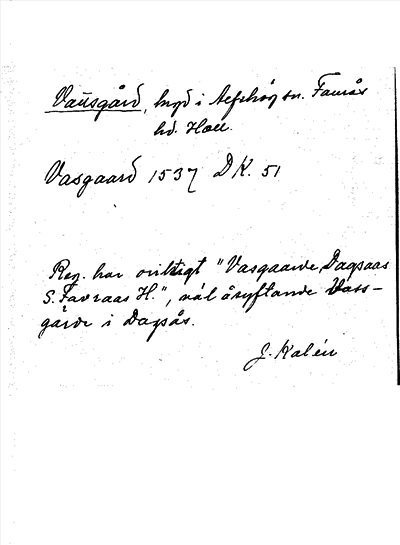 Vausgård, byd i Asfshög sn. Faurås
hd. Hall.
Vasgaard 1537 DK. 51
Reg. har oriktigt "Vasgaarde, Dagsaas
S. Favraas H.", väl åsyftande Vass-
gärde i Dagsås.
J. Kalén